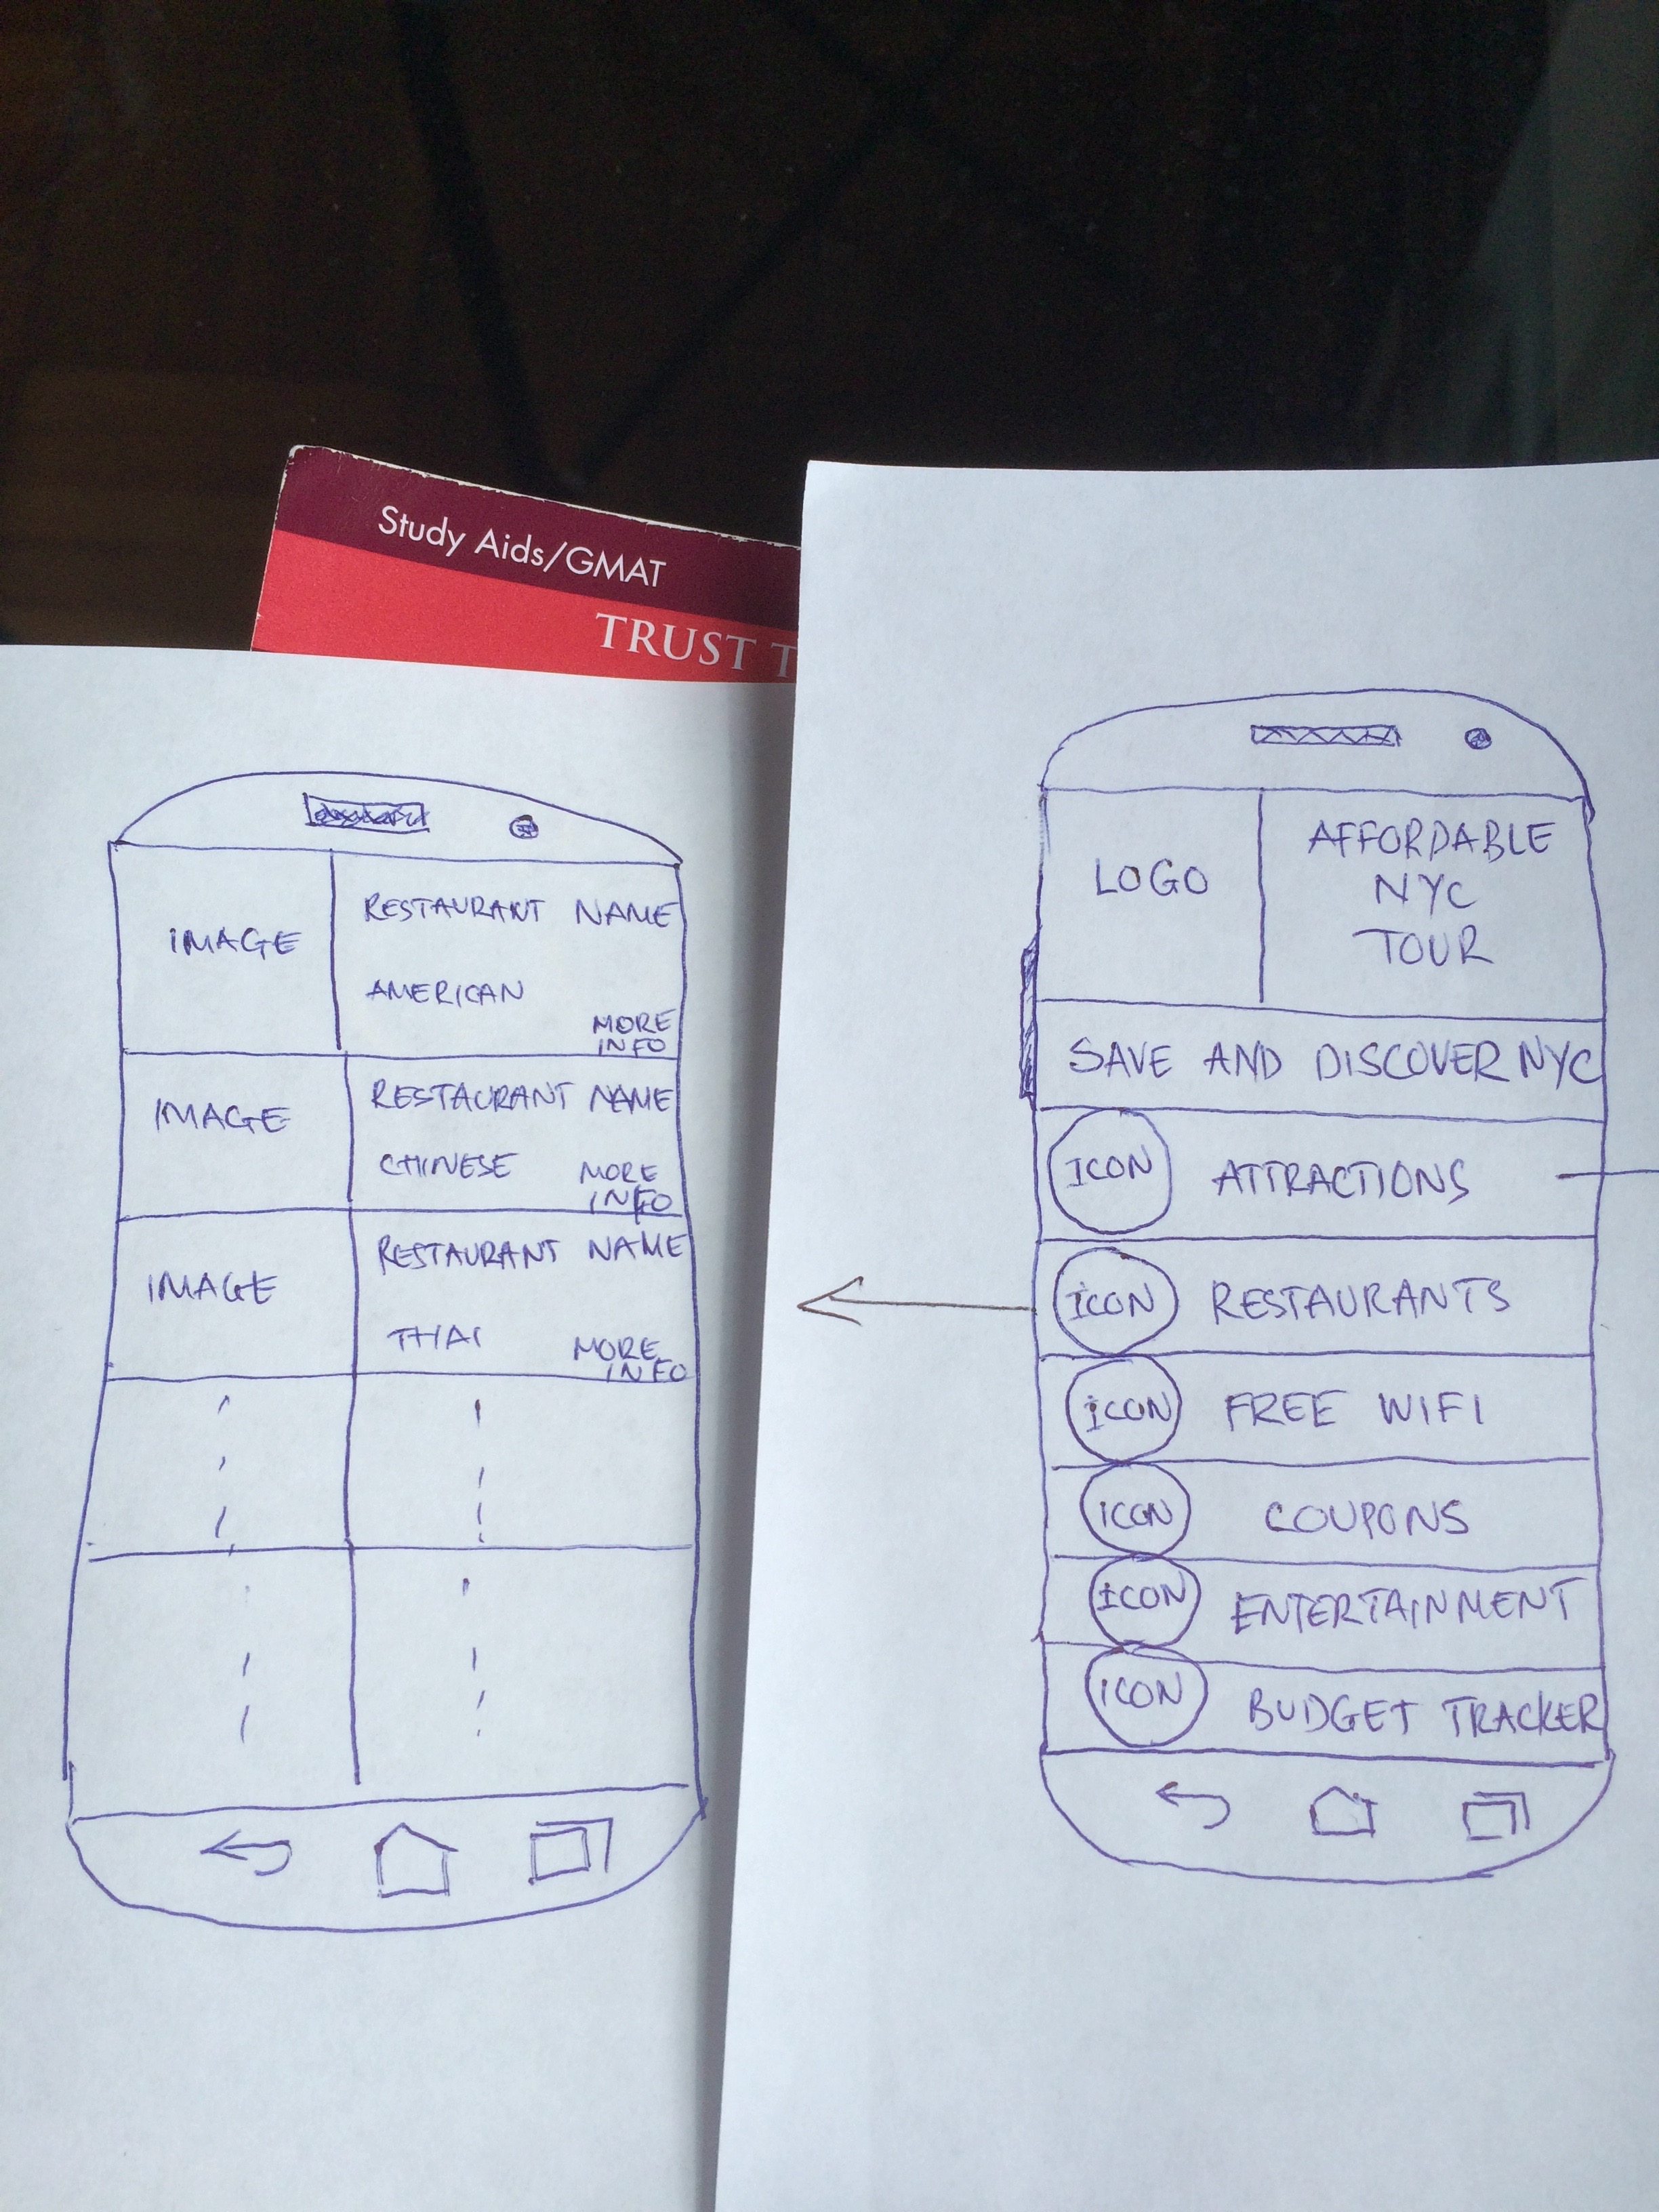 Study Aids/GMAT
TRUST T
IMAGE
RESTAURANT NAME
AMERICAN
MORE
INFO
IMAGE
RESTAURANT NAME
CHINESE
MORE
INFO
IMAGE
RESTAURANT NAME
THAI
MORE
INFO
LOGO
AFFORDABLE
NYC
TOUR
SAVE AND DISCOVER NYC
ICON ATTRACTIONS
ICON RESTAURANTS
ICON FREE WIFI
ICON COUPONS
ICON ENTERTAINMENT
ICON BUDGET TRACKER